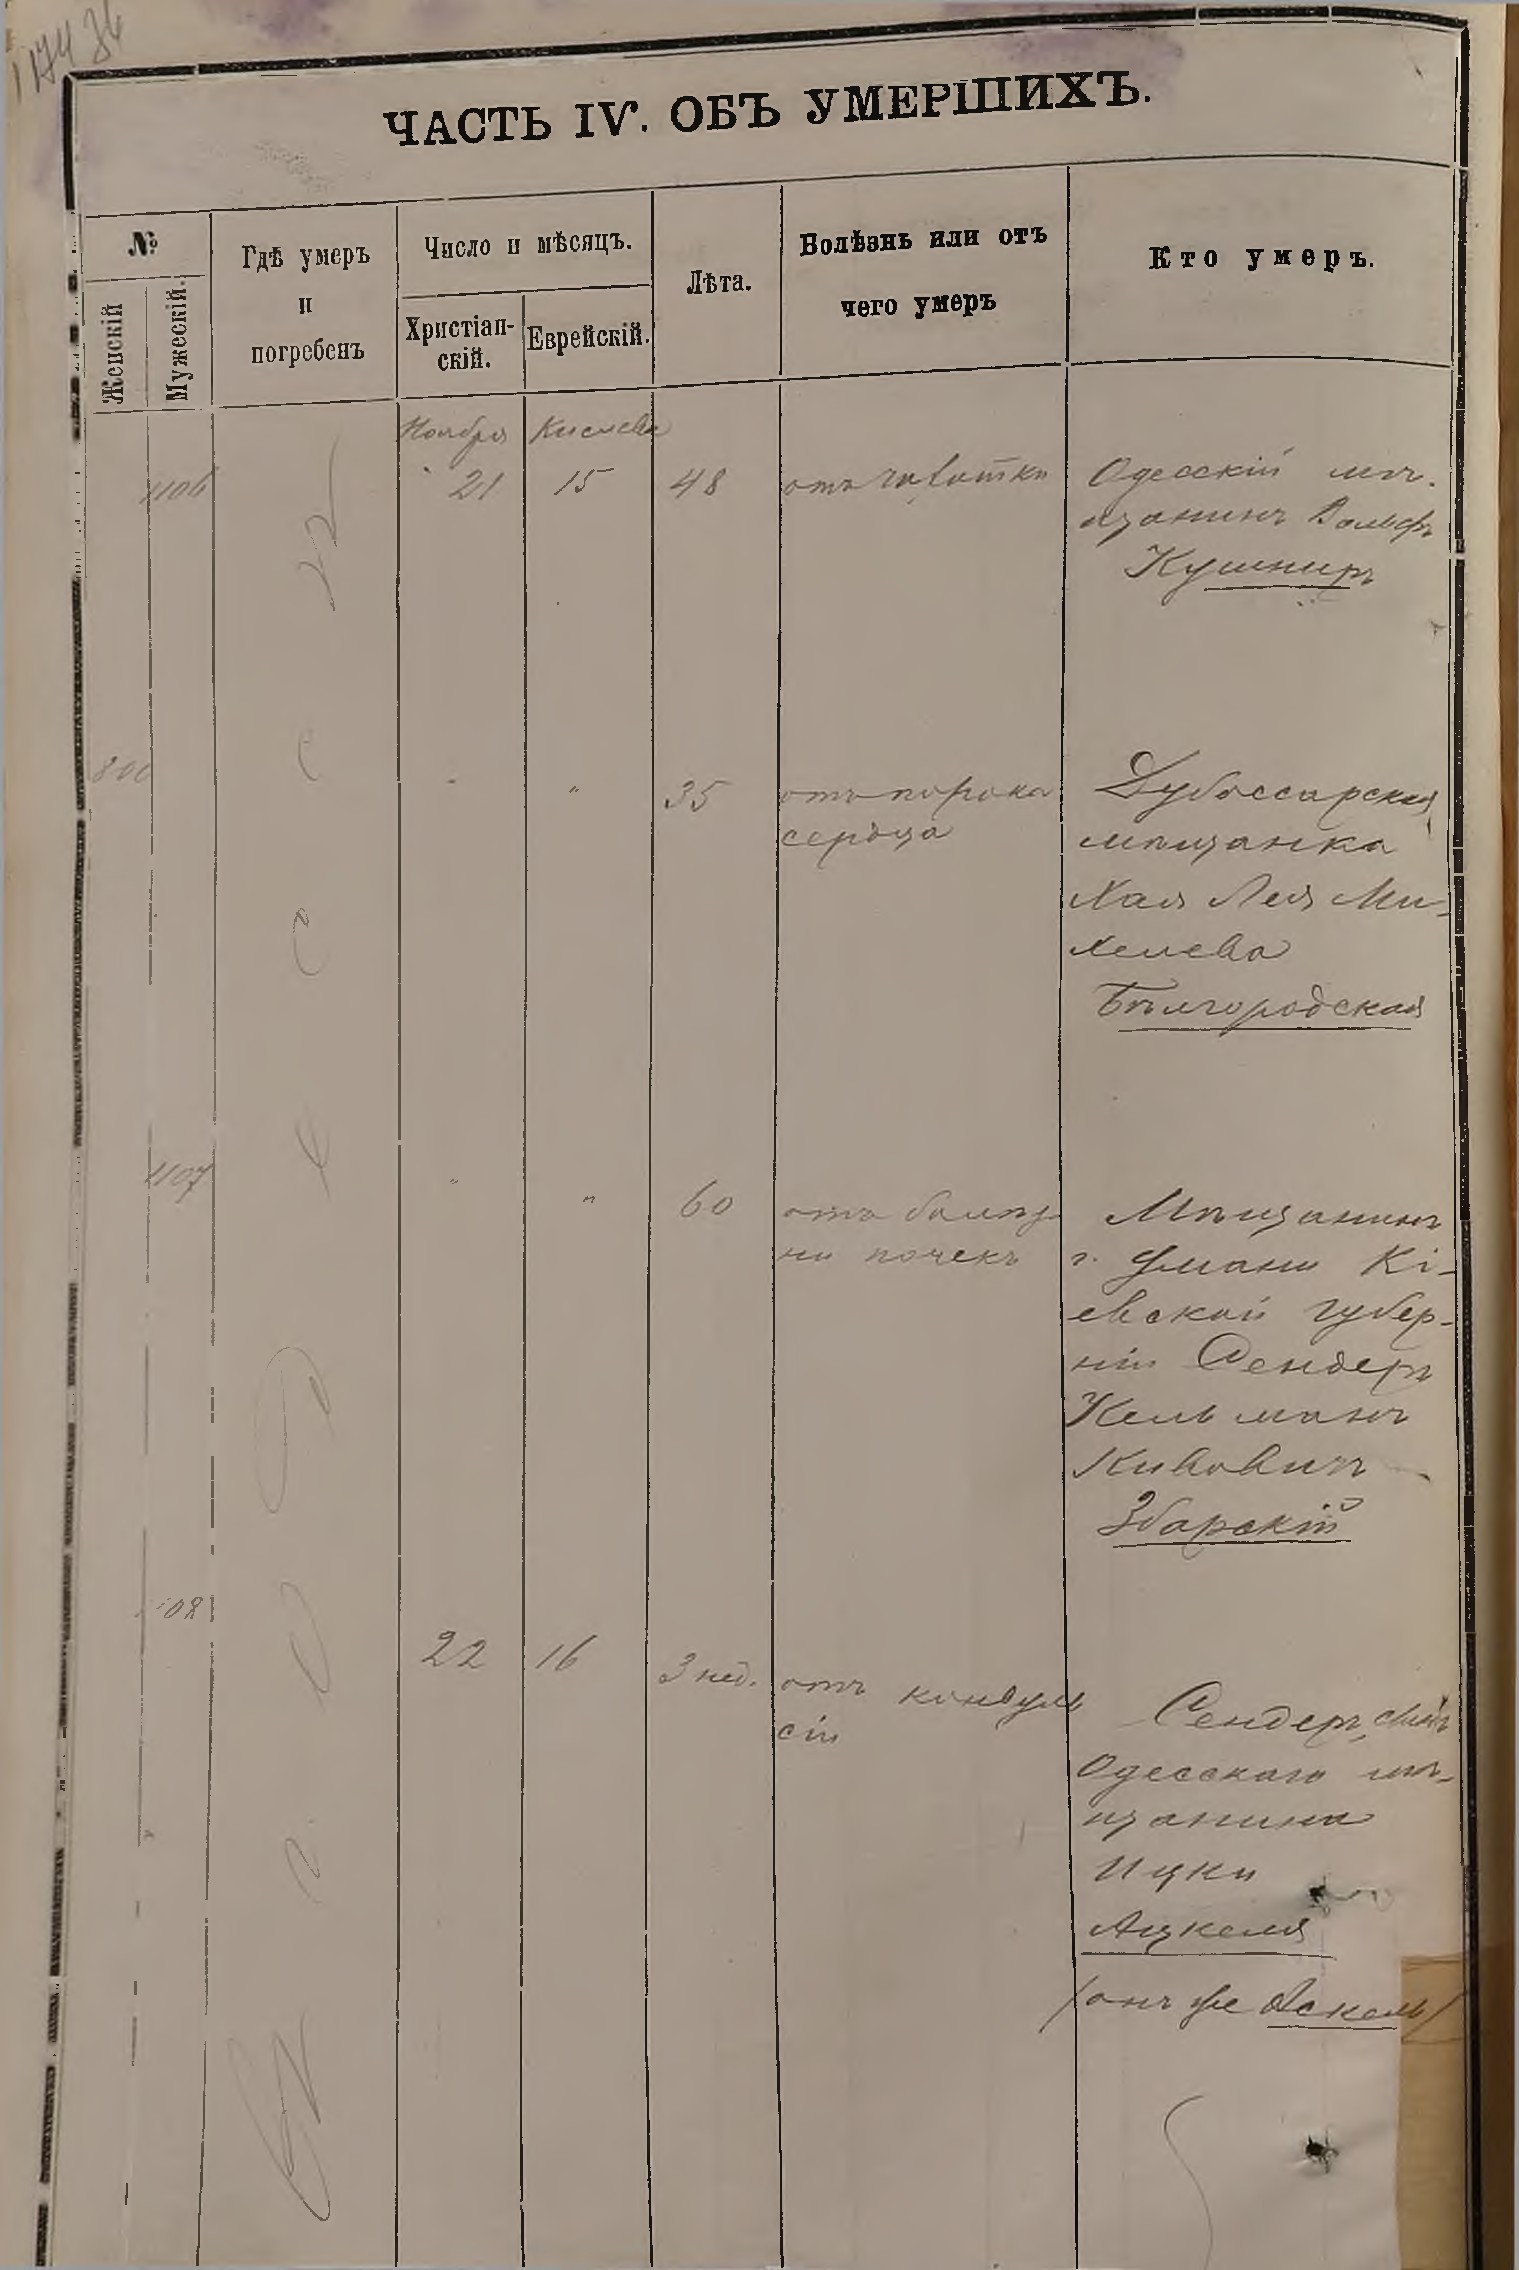 ЧАСТЬ IV. ОБЪ УМЕРШИХЪ.
№
Женскій
Мужескій.
Гдѣ умеръ
и
погребенъ
Число и мѣсяцъ.
Христіан-
скій.
Еврейскій.
Лѣта.
Болѣзнь или отъ
чего умеръ
Кто умеръ.
Ноября Кислева
1106 21 15 48 отъ чахотки Одесскій мѣ-
щанинъ Вольфъ
Кушниръ
800 " " 35 отъ порока Дубоссарская
сердца мѣщанка
Хая Лея Ми-
хелева
Бѣлгородская
1107 " " 60 отъ болѣз- Мѣщанинъ
ни почекъ г. Умани Кі-
евской губер-
ніи Сендеръ
Кельманъ
Кивовичъ
Збарскій
1108 22 16 3 нед. отъ конвуль Сендеръ, сынъ
сіи Одесскаго мѣ-
щанина
Ицки
Ацкеля
/онъ же Аскель/
въ Одессѣ